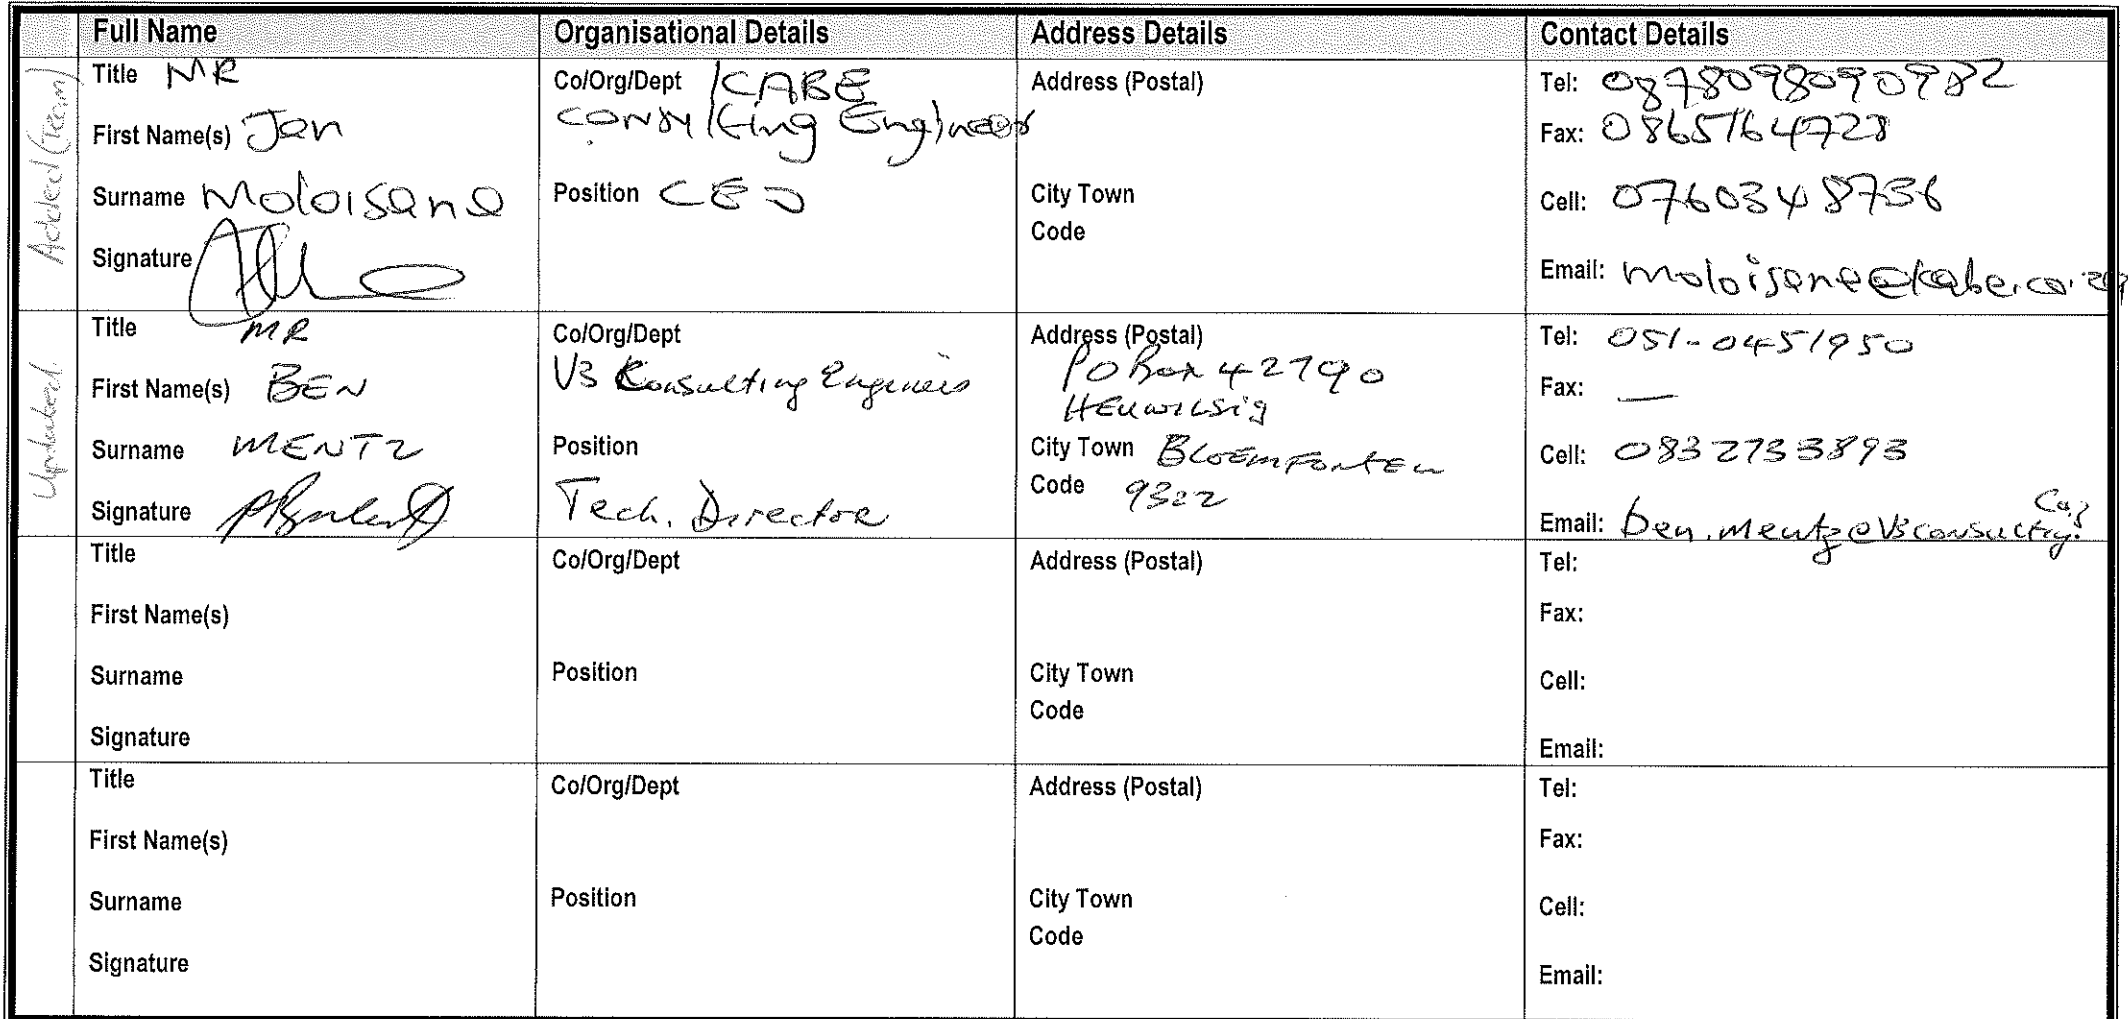 Full Name Organisational Details Address Details Contact Details
Added (Team)
Title MR
First Name(s) Jan
Surname Moloisane
Signature
Co/Org/Dept KABE
Consulting Engineers
Position CEO
Address (Postal)
City Town
Code
Tel: 0878098090982
Fax: 0865164728
Cell: 0760348736
Email: moloisane@kabe.co.za
Updated
Title MR
First Name(s) BEN
Surname MENTZ
Signature
Co/Org/Dept
V3 Consulting Engineers
Position
Tech. Director
Address (Postal)
PO Box 42790
HEUWILSig
City Town BLOEMFONTEIN
Code 9322
Tel: 051-0451950
Fax: —
Cell: 0832733893
Email: ben.mentz@V3consulting.
Title
First Name(s)
Surname
Signature
Co/Org/Dept
Position
Address (Postal)
City Town
Code
Tel:
Fax:
Cell:
Email:
Title
First Name(s)
Surname
Signature
Co/Org/Dept
Position
Address (Postal)
City Town
Code
Tel:
Fax:
Cell:
Email: